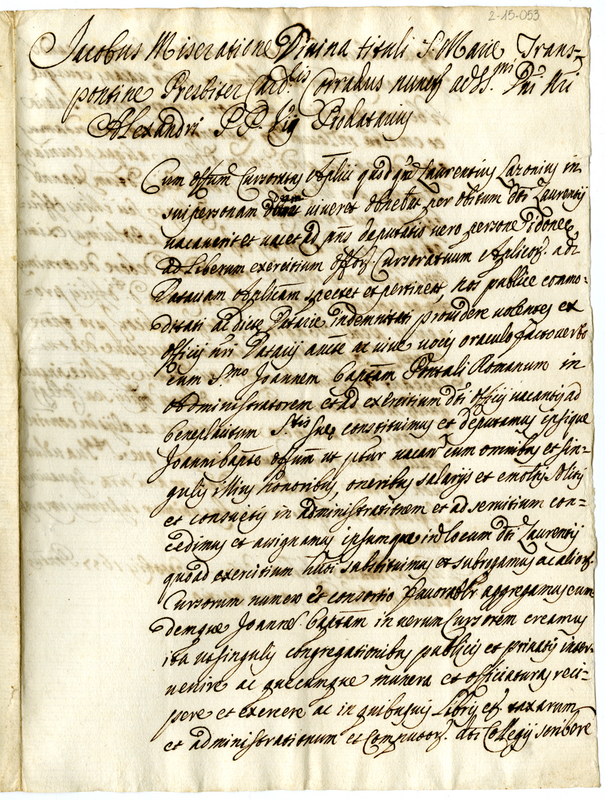 2-15-053
Jacobus Miseratione Divina tituli S. Marie Trans-
pontine Presbiter Card.lis Corradus nuncup. ad S.mi D.ni Nri
Alexandri P. P. Prodatarius
Cum offium Cursoratus Aplici quod qd. Laurentius Lazonius in
sui personam dum viveret obtinebat per obitum dti Laurentij
vacaverit et vacet ad pns deputatio vero persone Idonee
ad Liberum exercitium offior. Cursoratuum Aplicor. ad
Datariam Aplicam spectet et pertineat, nos publice commo-
ditati ac dicte Datarie indemnitati providere volentes ex
officij nri Datarij aucte ac vive vocis oraculo facto verbo
cum S.mo Joannem Baptam Portali Romanum in
Administratorem et ad exercitium dti officij vacantis ad
beneplacitum S.tis Sue constituimus et deputamus ipsique
Joanni Bapte offium ut pfur vacan. cum omnibus et sin-
gulis illius honoribus, oneribus salarijs et emoltis solitis
et consuetis in administrationem et ad servitium con-
cedimus et assignamus ipsumque in locum dti Laurentij
quoad exercitium hmoi substituimus et subrogamus ac alior.
Cursorum numero et consortio favorabir aggregamus eum
demque Joannem Baptam in verum Cursorem creamus
ita ut singulis congregationibus publicis et privatis inter-
venire ac quecumque munera et officiaturas reci-
pere et exercere ac in quibusvis Libris et taxarum
et administrationum et Computor. dti Collegij scribere